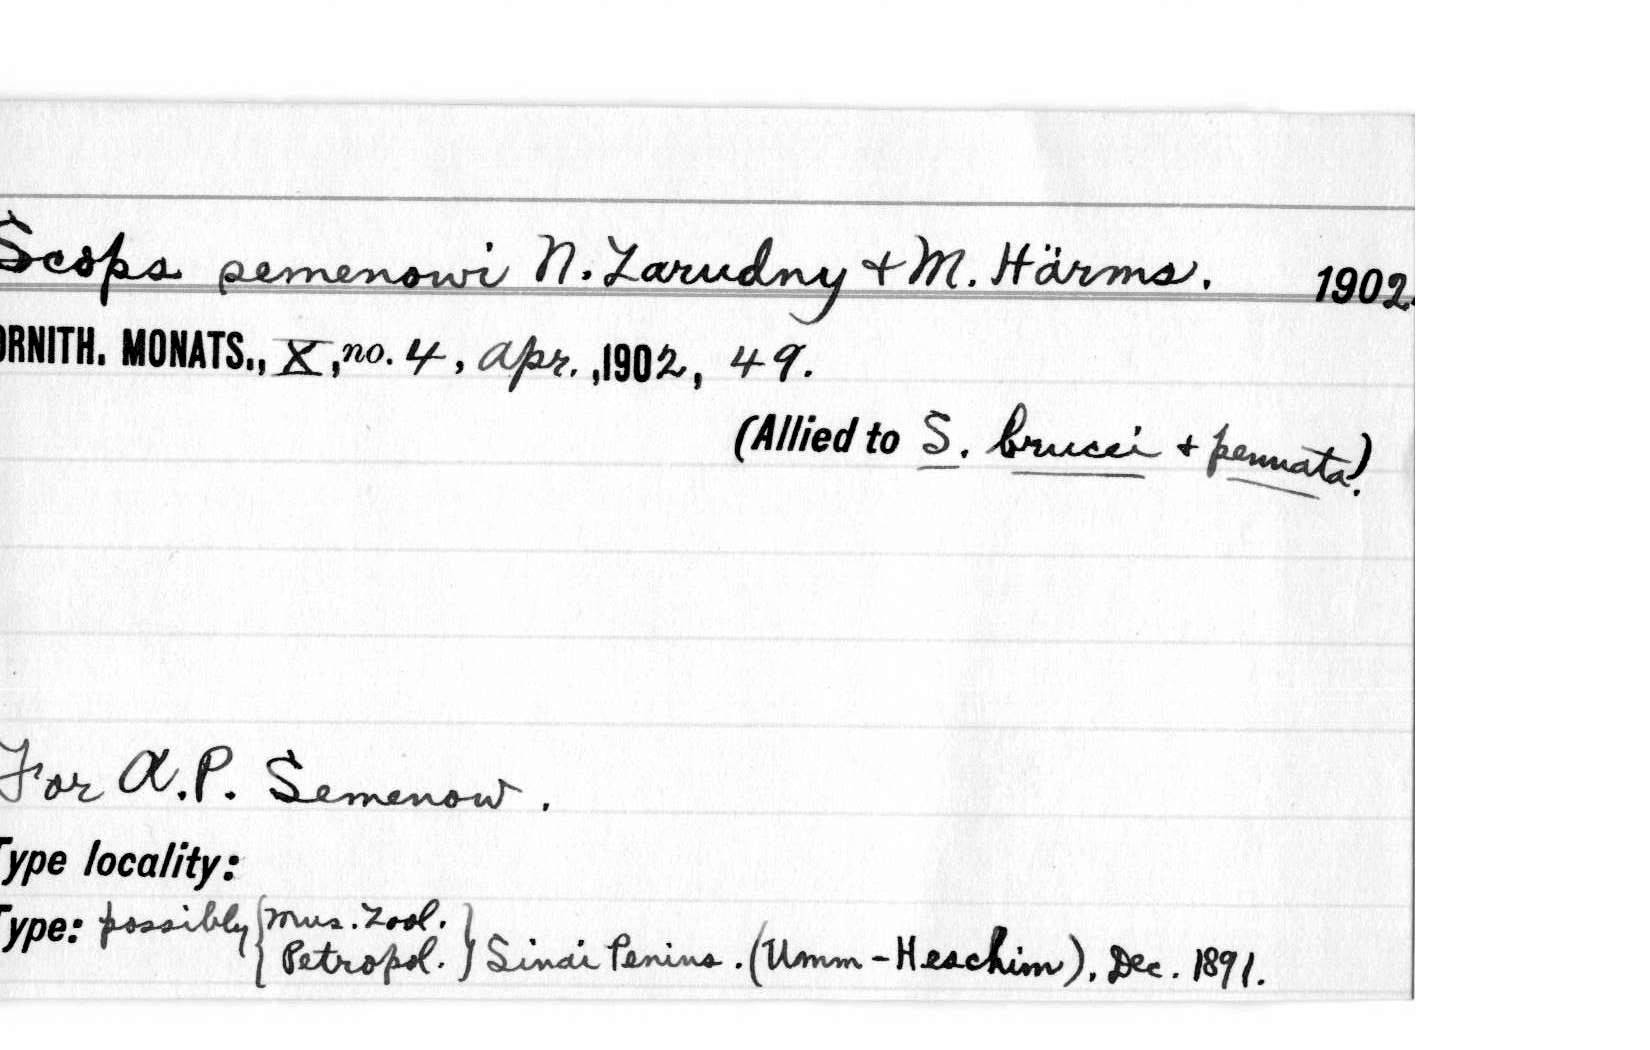 Scops semenowi N. Zarudny + M. Härms. 1902.
ORNITH. MONATS., X, no. 4, Apr., 1902, 49.
(Allied to S. brucei + pennata).
For A.P. Semenow.
Type locality:
Type: possibly {Mus. Zool.
Petropol.} Sinai Penins. (Umm-Heschim), Dec. 1891.